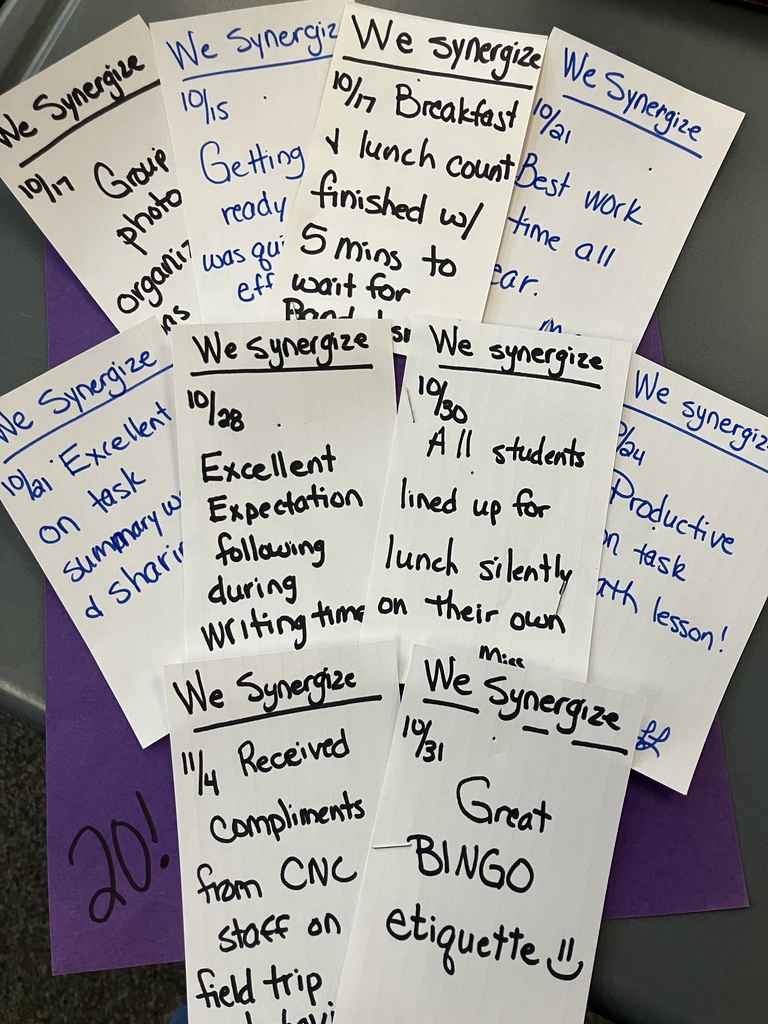 We Synergize
10/17 Group
photo
We Synergize
10/15
Getting
ready
was
We Synergize
10/17 Breakfast
& lunch count
finished w/
5 mins to
wait for
We Synergize
10/21
Best work
time all
We Synergize
10/21 Excellent
on task
summary
&
We Synergize
10/28
Excellent
Expectation
following
during
Writing time
We synergize
10/30
All students
lined up for
lunch silently
on their own
We synergize
Productive
task
lesson!
We Synergize
11/4 Received
compliments
from CNC
staff on
field trip
We Synergize
10/31
Great
BINGO
etiquette
20!